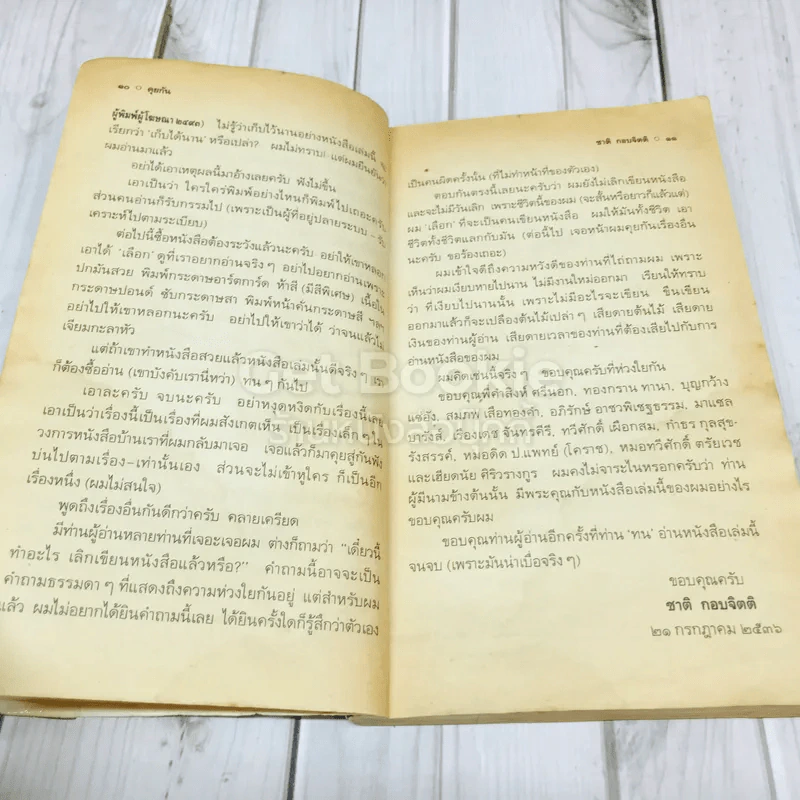 ๑๐ ○ คุยกัน
ผู้พิมพ์ผู้โฆษณา ๒๔๙๓) ไม่รู้ว่าเก็บไว้นานอย่างหนังสือเล่มนี้
เรียกว่า 'เก็บได้นาน' หรือเปล่า? ผมไม่ทราบ แต่ผมยืนยันว่า
ผมอ่านมาแล้ว
อย่าได้เอาเหตุผลนี้มาอ้างเลยครับ ฟังไม่ขึ้น
เอาเป็นว่า ใครใคร่พิมพ์อย่างไหนก็พิมพ์ไปเถอะครับ
ส่วนคนอ่านก็รับกรรมไป (เพราะเป็นผู้ที่อยู่ปลายระบบ – รับ
เคราะห์ไปตามระเบียบ)
ต่อไปนี้ซื้อหนังสือต้องระวังแล้วนะครับ อย่าให้เขาหลอก
เอาได้ 'เลือก' ดูที่เราอยากอ่านจริงๆ อย่าไปอยากอ่านเพราะ
ปกมันสวย พิมพ์กระดาษอาร์ตการ์ด ห้าสี (มีสีพิเศษ) เนื้อใน
กระดาษปอนด์ ซับกระดาษสา พิมพ์หน้าคั่นกระดาษสี ฯลฯ
อย่าไปให้เขาหลอกนะครับ อย่าไปให้เขาว่าได้ ว่าจนแล้วไม่
เจียมกะลาหัว
แต่ถ้าเขาทำหนังสือสวยแล้วหนังสือเล่มนั้นดีจริงๆ เรา
ก็ต้องซื้ออ่าน (เขาบังคับเรานี่หว่า) ทนๆ กันไป
เอาละครับ จบนะครับ อย่าหงุดหงิดกับเรื่องนี้เลย
เอาเป็นว่าเรื่องนี้เป็นเรื่องที่ผมสังเกตเห็น เป็นเรื่องเล็กๆ ใน
วงการหนังสือบ้านเราที่ผมกลับมาเจอ เจอแล้วก็มาคุยสู่กันฟัง
บ่นไปตามเรื่อง–เท่านั้นเอง ส่วนจะไม่เข้าหูใคร ก็เป็นอีก
เรื่องหนึ่ง (ผมไม่สนใจ)
พูดถึงเรื่องอื่นกันดีกว่าครับ คลายเครียด
มีท่านผู้อ่านหลายท่านที่เจอะเจอผม ต่างก็ถามว่า "เดี๋ยวนี้
ทำอะไร เลิกเขียนหนังสือแล้วหรือ?" คำถามนี้อาจจะเป็น
คำถามธรรมดาๆ ที่แสดงถึงความห่วงใยกันอยู่ แต่สำหรับผม
แล้ว ผมไม่อยากได้ยินคำถามนี้เลย ได้ยินครั้งใดก็รู้สึกว่าตัวเอง
ชาติ กอบจิตติ ○ ๑๑
เป็นคนผิดครั้งนั้น (ที่ไม่ทำหน้าที่ของตัวเอง)
ตอบกันตรงนี้เลยนะครับว่า ผมยังไม่เลิกเขียนหนังสือ
และจะไม่มีวันเลิก เพราะชีวิตนี้ของผม (จะสั้นหรือยาวก็แล้วแต่)
ผม 'เลือก' ที่จะเป็นคนเขียนหนังสือ ผมให้มันทั้งชีวิต เอา
ชีวิตทั้งชีวิตแลกกับมัน (ต่อนี้ไป เจอหน้าผมคุยกันเรื่องอื่น
นะครับ ขอร้องเถอะ)
ผมเข้าใจดีถึงความหวังดีของท่านที่ไถ่ถามผม เพราะ
เห็นว่าผมเงียบหายไปนาน ไม่มีงานใหม่ออกมา เรียนให้ทราบ
ว่า ที่เงียบไปนานนั้น เพราะไม่มีอะไรจะเขียน ขืนเขียน
ออกมาแล้วก็จะเปลืองต้นไม้เปล่าๆ เสียดายต้นไม้ เสียดาย
เงินของท่านผู้อ่าน เสียดายเวลาของท่านที่ต้องเสียไปกับการ
อ่านหนังสือของผม
ผมคิดเช่นนี้จริงๆ ขอบคุณครับที่ห่วงใยกัน
ขอบคุณพี่คำสิงห์ ศรีนอก, ทองกราน ทานา, บุญกว้าง
แซ่ฮัง, สมภพ เสือทองคำ, อภิรักษ์ อาชวพิเชฐธรรม, มาแซล
บารังสี, เรืองเดช จันทรคีรี, ทวีศักดิ์ เผือกสม, กำธร กุลสุข-
รังสรรค์, หมอดิด ป.แพทย์ (โคราช), หมอทวีศักดิ์ ตรัยเวช
และเฮียดนัย ศิริวรางกูร ผมคงไม่จาระไนหรอกครับว่า ท่าน
ผู้มีนามข้างต้นนั้น มีพระคุณกับหนังสือเล่มนี้ของผมอย่างไร
ขอบคุณครับผม
ขอบคุณท่านผู้อ่านอีกครั้งที่ท่าน 'ทน' อ่านหนังสือเล่มนี้
จนจบ (เพราะมันน่าเบื่อจริงๆ)
ขอบคุณครับ
ชาติ กอบจิตติ
๒๑ กรกฎาคม ๒๕๓๖
Get Bookie